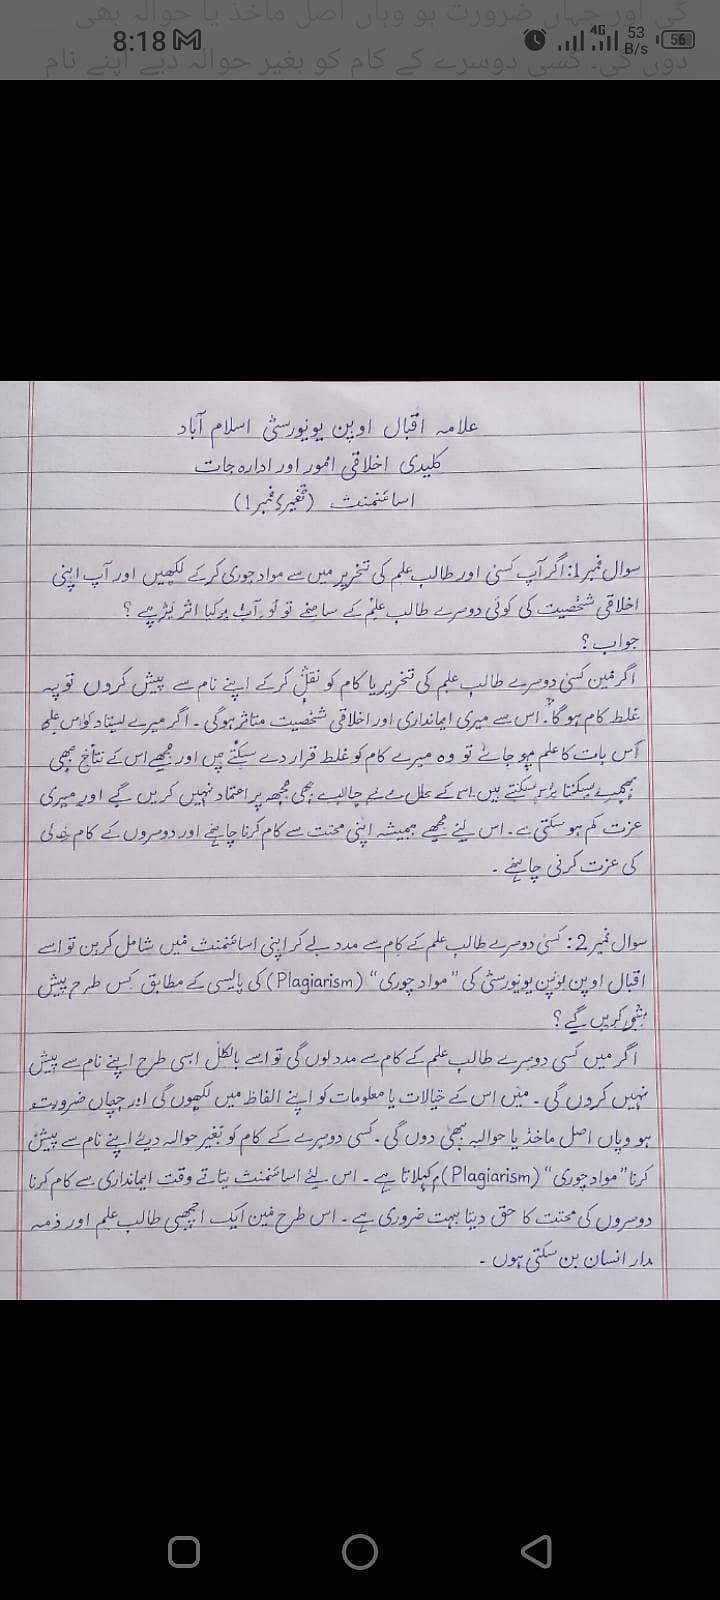 گی اور جہاں ضرورت ہو وہاں اصل ماخذ یا حوالہ بھی
8:18 4G 53 B/s 56
دوں گی۔ کسی دوسرے کے کام کو بغیر حوالہ دیے اپنے نام
علامہ اقبال اوپن یونیورسٹی اسلام آباد
کلیدی اخلاقی امور اور ادارہ جات
اسائنمنٹ (نمبر 1)
سوال نمبر 1: اگر آپ کسی اور طالب علم کی تحریر میں سے مواد چوری کرکے لکھیں اور آپ اپنی
اخلاقی شخصیت کی کوئی دوسرے طالب علم کے سامنے تو آپ پر کیا اثر پڑے ؟
جواب ؟
اگر میں کسی دوسرے طالب علم کی تحریر یا کام کو نقل کرکے اپنے نام سے پیش کروں تو یہ
غلط کام ہو گا۔ اس سے میری ایمانداری اور اخلاقی شخصیت متاثر ہوگی ۔ اگر میرے استاد کو اس
اس بات کا علم ہو جائے تو وہ میرے کام کو غلط قرار دے سکتے ہیں اور مجھے اس کے نتائج بھی
سکتے ہیں اس کے بھی مجھ پر اعتماد نہیں کریں گے اور میری
عزت کم ہو سکتی ہے۔ اس لئے مجھے ہمیشہ اپنی محنت سے کام کرنا چاہئے اور دوسروں کے کام
کی عزت کرنی چاہئے ۔
سوال نمبر 2: کسی دوسرے طالب علم کے کام سے مدد لے کر اپنی اسائنمنٹ میں شامل کریں تو اسے
اقبال اوپن یونیورسٹی کی "مواد چوری" (Plagiarism) کی پالیسی کے مطابق کس طرح پیش
کریں گے ؟
اگر میں کسی دوسرے طالب علم کے کام سے مدد لوں گی تو اسے بالکل اسی طرح اپنے نام سے پیش
نہیں کروں گی ۔ میں اس کے خیالات یا معلومات کو اپنے الفاظ میں لکھوں گی اور جہاں ضرورت
ہو وہاں اصل ماخذ یا حوالہ بھی دوں گی ۔ کسی دوسرے کے کام کو بغیر حوالہ دیئے اپنے نام سے پیش
کرنا "مواد چوری" (Plagiarism) کہلاتا ہے ۔ اس لئے اسائنمنٹ بناتے وقت ایمانداری سے کام کرنا
دوسروں کی محنت کا حق دینا بہت ضروری ہے ۔ اس طرح میں ایک اچھی طالب علم اور ذمہ
دار انسان بن سکتی ہوں ۔